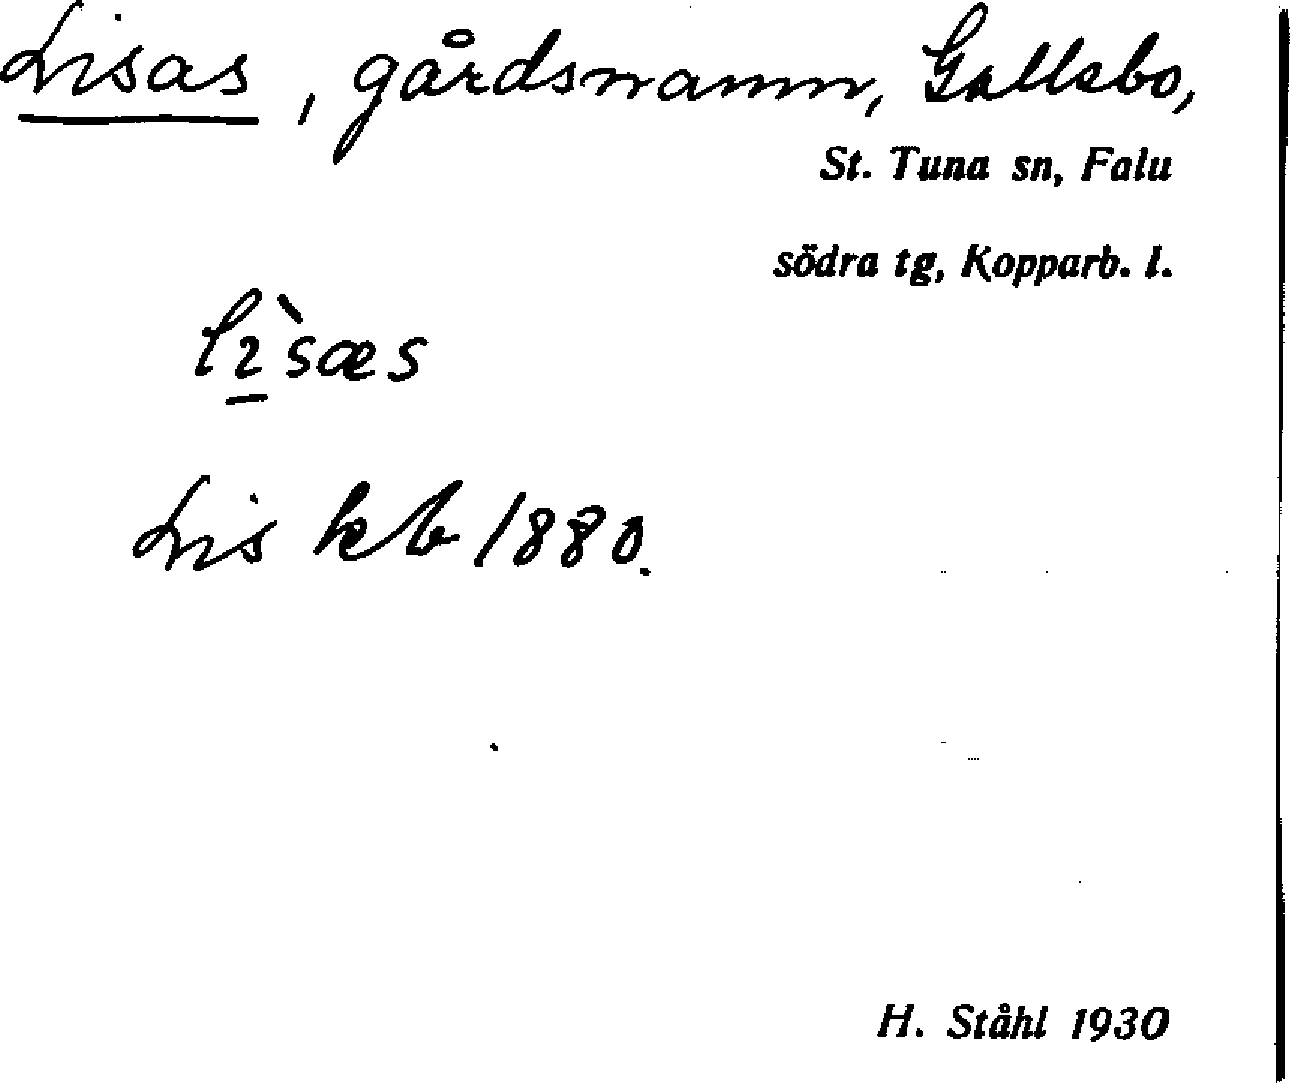 Lisas, gårdsnamn, Gallsbo,
St. Tuna sn, Falu
södra tg, Kopparb. l.
lɩ̲̀sæs
Lis kb 1880.
H. Ståhl 1930